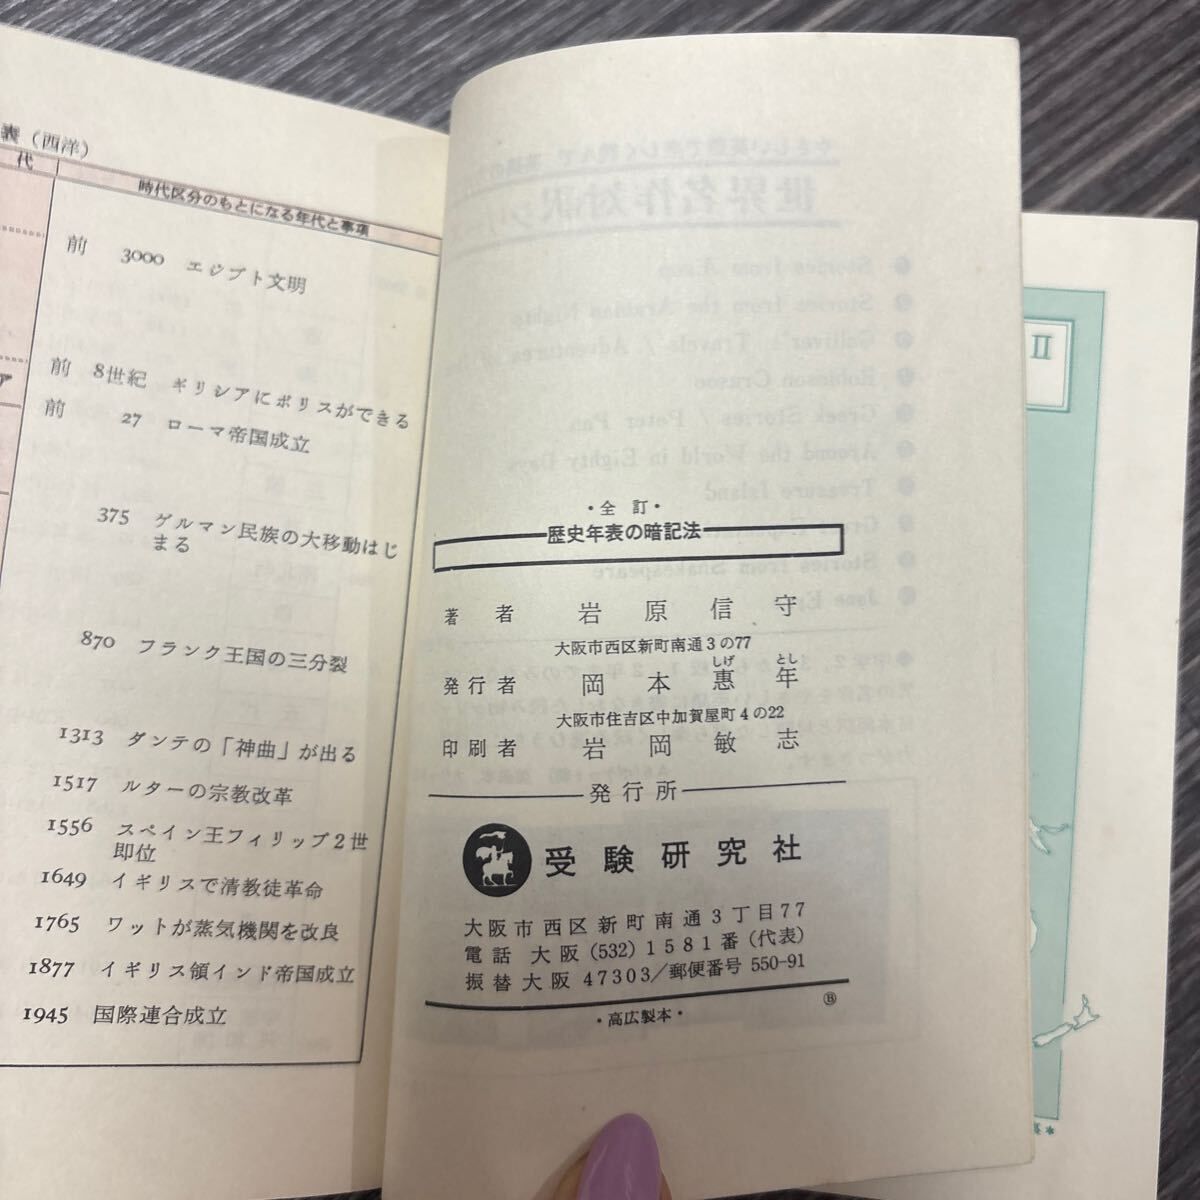 表（西洋）
代
時代区分のもとになる年代と事項
前 3000 エジプト文明
前 8世紀 ギリシアにポリスができる
前 27 ローマ帝国成立
375 ゲルマン民族の大移動はじ
まる
870 フランク王国の三分裂
1313 ダンテの「神曲」が出る
1517 ルターの宗教改革
1556 スペイン王フィリップ2世
即位
1649 イギリスで清教徒革命
1765 ワットが蒸気機関を改良
1877 イギリス領インド帝国成立
1945 国際連合成立
・全訂・
歴史年表の暗記法
著者 岩原信守
大阪市西区新町南通3の77
しげ とし
発行者 岡本惠年
大阪市住吉区中加賀屋町4の22
印刷者 岩岡敏志
発行所
受験研究社
大阪市西区新町南通3丁目77
電話 大阪(532)1581番(代表)
振替大阪 47303/郵便番号 550-91
Ⓑ
・高広製本・
II